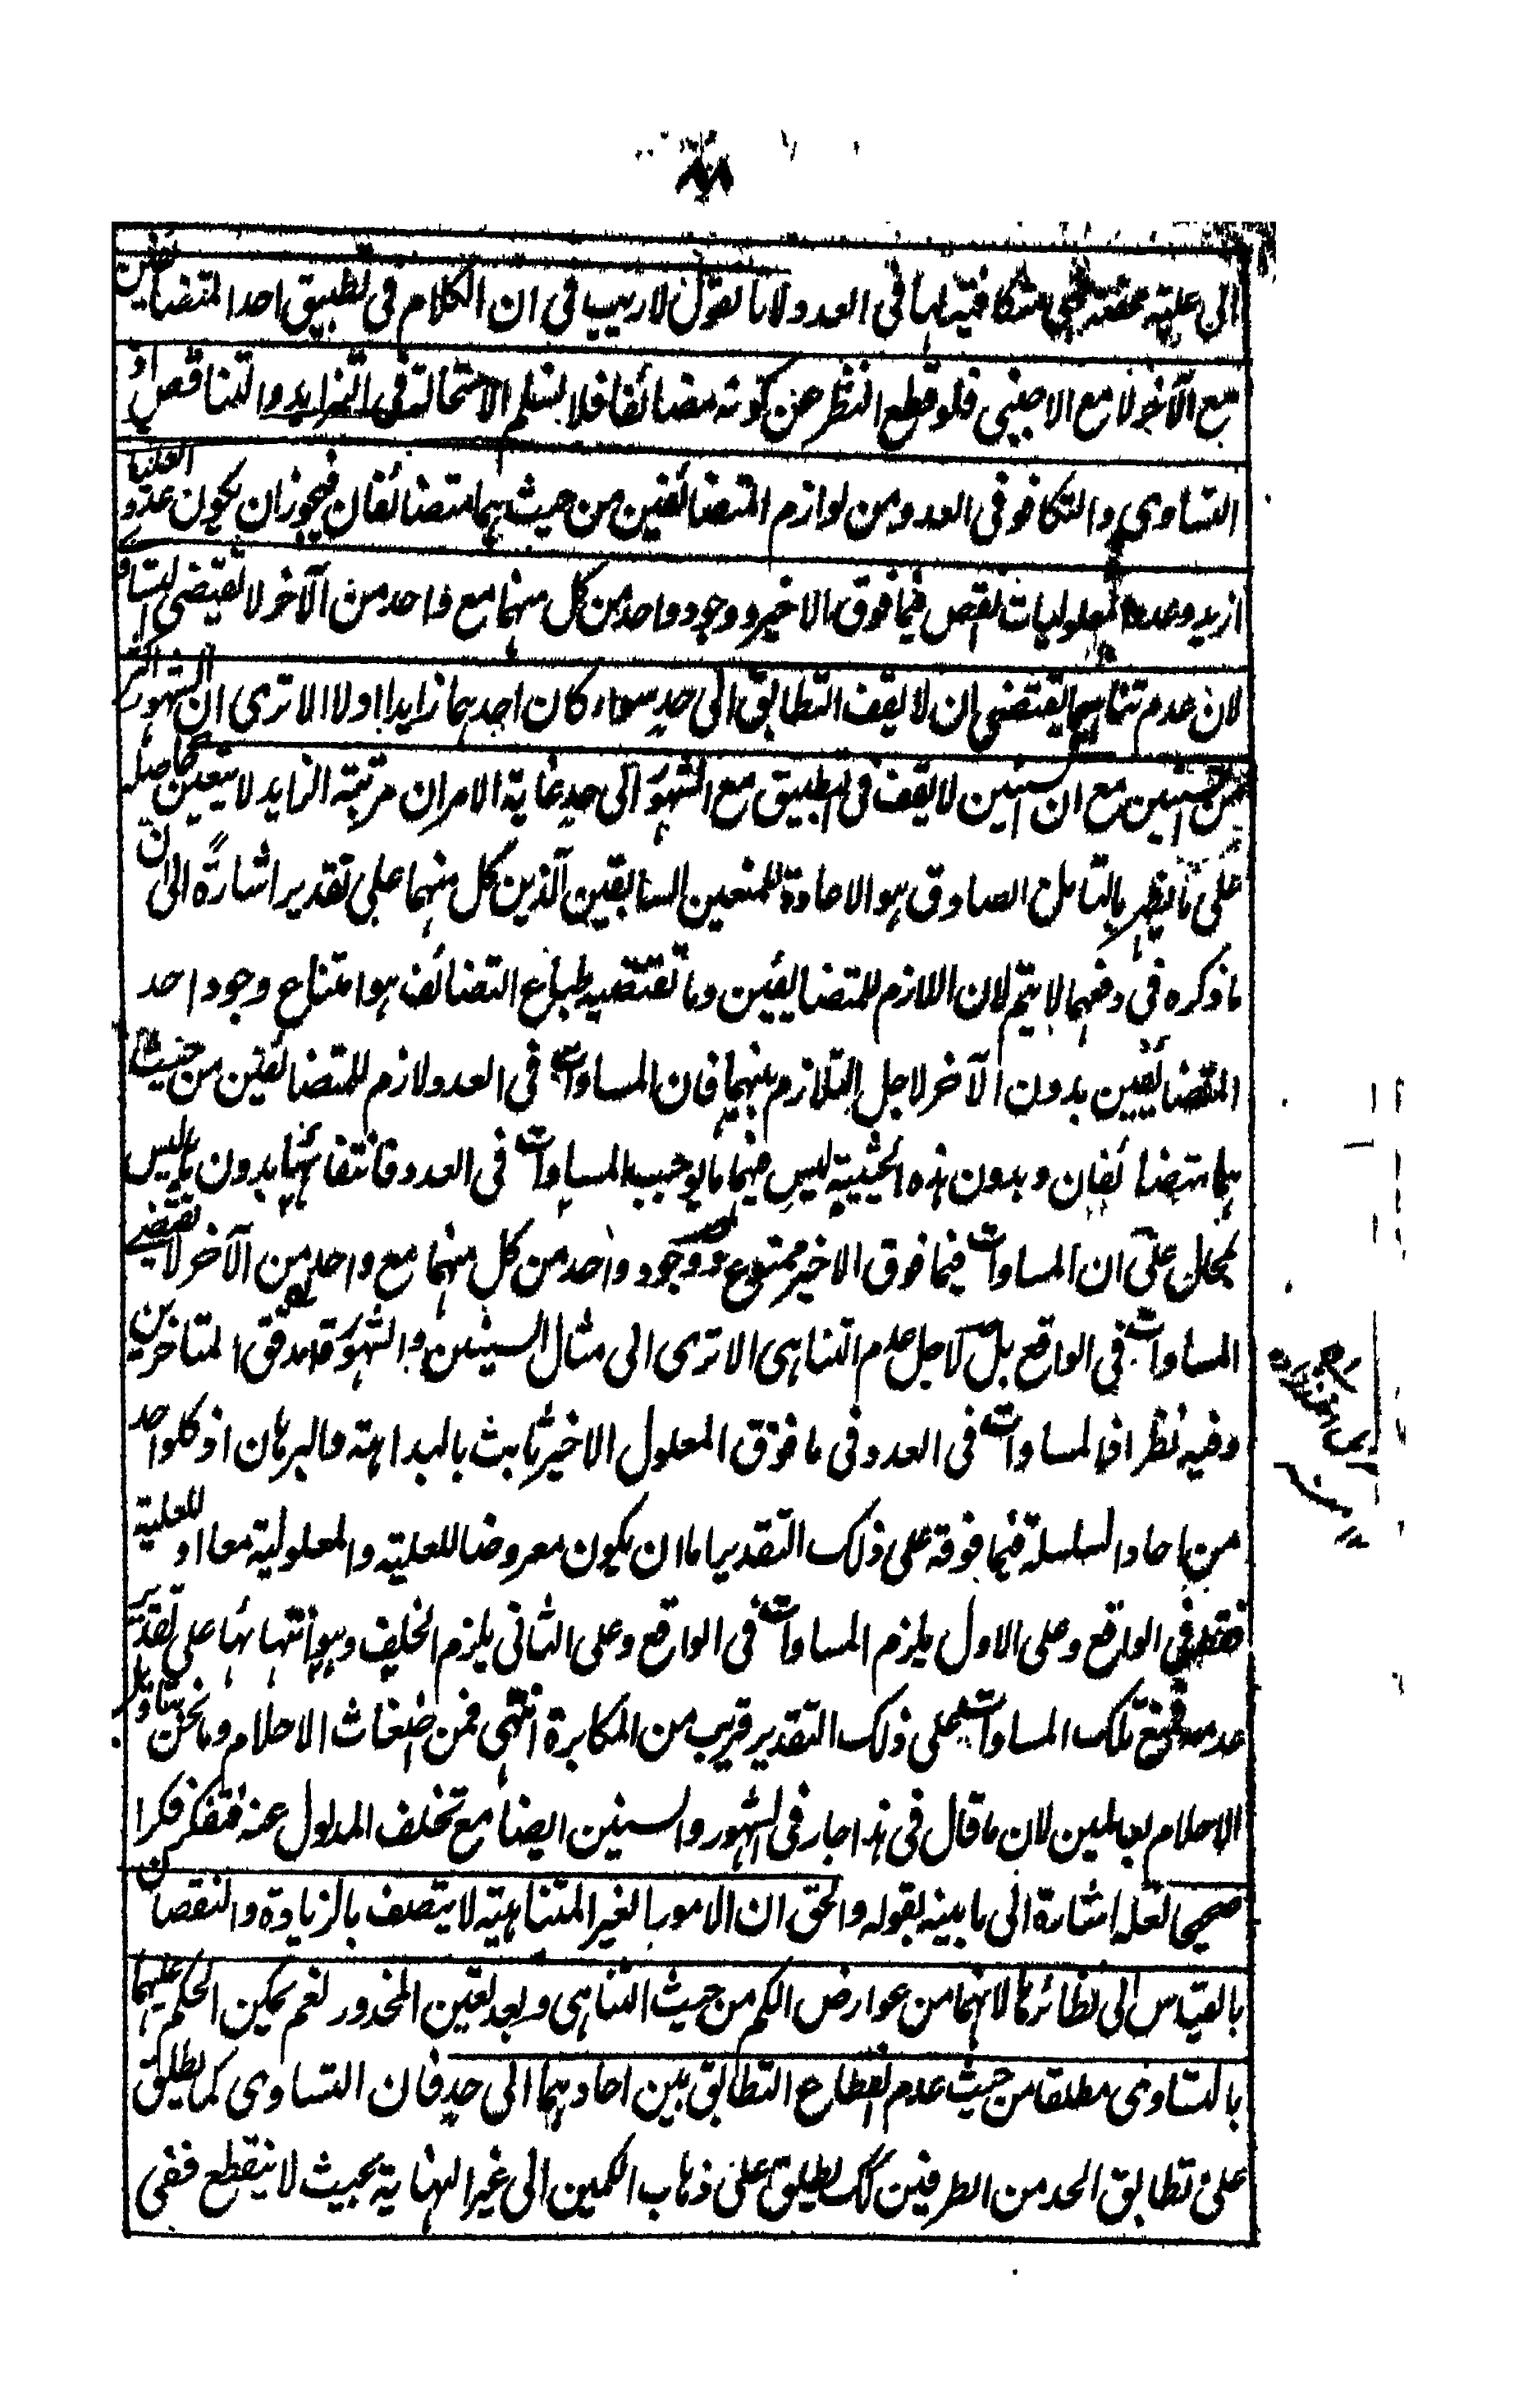 ٨٨
الى علية محضة فهى متكافئة لها فى العدد ولانا نقول لا ريب فى ان الكلام فى تطبيق احد المتضائفين
مع الآخر لا مع الاجنبى فلو قطع النظر عن كونه مضائفا فلا نسلم الاستحالة فى التزايد والتناقص او
التساوى والتكافو فى العدد من لوازم المتضائفين من حيث هما متضائفان فيجوز ان يكون عدد العليا
ازيد وعدد المعلوليات انقص فيما فوق الاخير ووجود واحد من كل منهما مع واحد من الآخر لا تقتضى التساو
لان عدم تناهيهما يقتضى ان لا يقف التطابق الى حد سواء كان احدهما زايدا اولا الا ترى ان الشهور اكثر
من السنين مع ان السنين لا يقف فى التطبيق مع الشهور الى حد غاية الامر ان مرتبة الزايد لا يتعين حاصله
على ما يظهر بالتامل الصادق هو الاعادة للمنعين السابقين الذين كل منهما على تقدير اشارة الى ان
ما ذكره فى دفعهما لا يتم لان اللازم للمتضايفين وما تقتضيه طباع التضائف هو امتناع وجود احد
المتضائفين بدون الآخر لاجل التلازم بينهما فان المساوات فى العدد لازم للمتضائفين من حيث
هما متضائفان وبدون هذه الحيثية ليس فيهما ما يوجب المساوات فى العدد فانتفائها بدون ما ليس
بمحال على ان المساوات فيما فوق الاخير ممنوع ووجود واحد من كل منهما مع واحد من الآخر لا يقتضے
المساوات فى الواقع بل لاجل عدم التناهى الا ترى الى مثال السنين والشهور قال مدقق المتاخرين
وفيه نظر اذ المساوات فى العدد فى ما فوق المعلول الاخير ثابت بالبداهة والبرهان اذ كلواحد
من احاد السلسلة فيما فوقه على ذلك التقدير اما ان يكون معروضا للعلية والمعلولية معا او للعلية
فقط فى الواقع وعلى الاول يلزم المساوات فى الواقع وعلى الثانى يلزم الخلف وهو انتهائها على تقدير
عدمه فمنع تلك المساوات على ذلك التقدير قريب من المكابرة انتهى فمن اضغاث الاحلام وما نحن بتاويل
الاحلام بعالمين لان ما قال فى هذا جار فى الشهور والسنين ايضا مع تخلف المدلول عنه فتفكر فكرا
صحيحا لعله اشارة الى ما بينه بقوله والحق ان الامور الغير المتناهية لا يتصف بالزيادة والنقصان
بالقياس الى نظائرها لانهما من عوارض الكم من حيث التناهى وبعد تعين المحذور نعم يمكن الحكم عليهما
بالتساوى مطلقا من حيث عدم انقطاع التطابق بين احادهما الى حد فان التساوى كما يطلق
على تطابق الحد من الطرفين كك يطلق على ذهاب الكمين الى غير النهاية بحيث لا ينقطع ففى